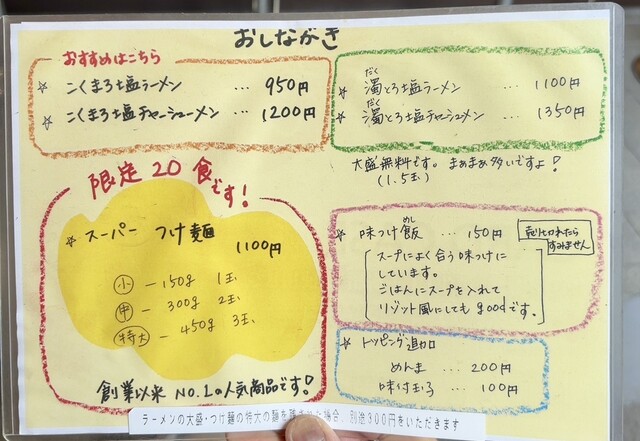 おしながき
おすすめはこちら
☆ こくまろ塩ラーメン … 950円
☆ こくまろ塩チャーシューメン … 1200円
☆ 濁とろ塩ラーメン … 1100円
だく
☆ 濁とろ塩チャーシュメン … 1350円
だく
大盛無料です。まぁまぁ多いですよ!
(1.5玉)
限定20食です!
☆ スーパーつけ麺
1100円
小 ー 150g 1玉
中 ー 300g 2玉
特大 ー 450g 3玉
創業以来 NO.1の人気商品です!
☆ 味つけ飯 … 150円
めし
売り切れたら
すみません
スープによく合う味つけに
しています。
ごはんにスープを入れて
リゾット風にしても goodです。
トッピング追加
めんま … 200円
味付玉子 … 100円
ラーメンの大盛・つけ麺の特大の麺を残された場合、別途300円をいただきます